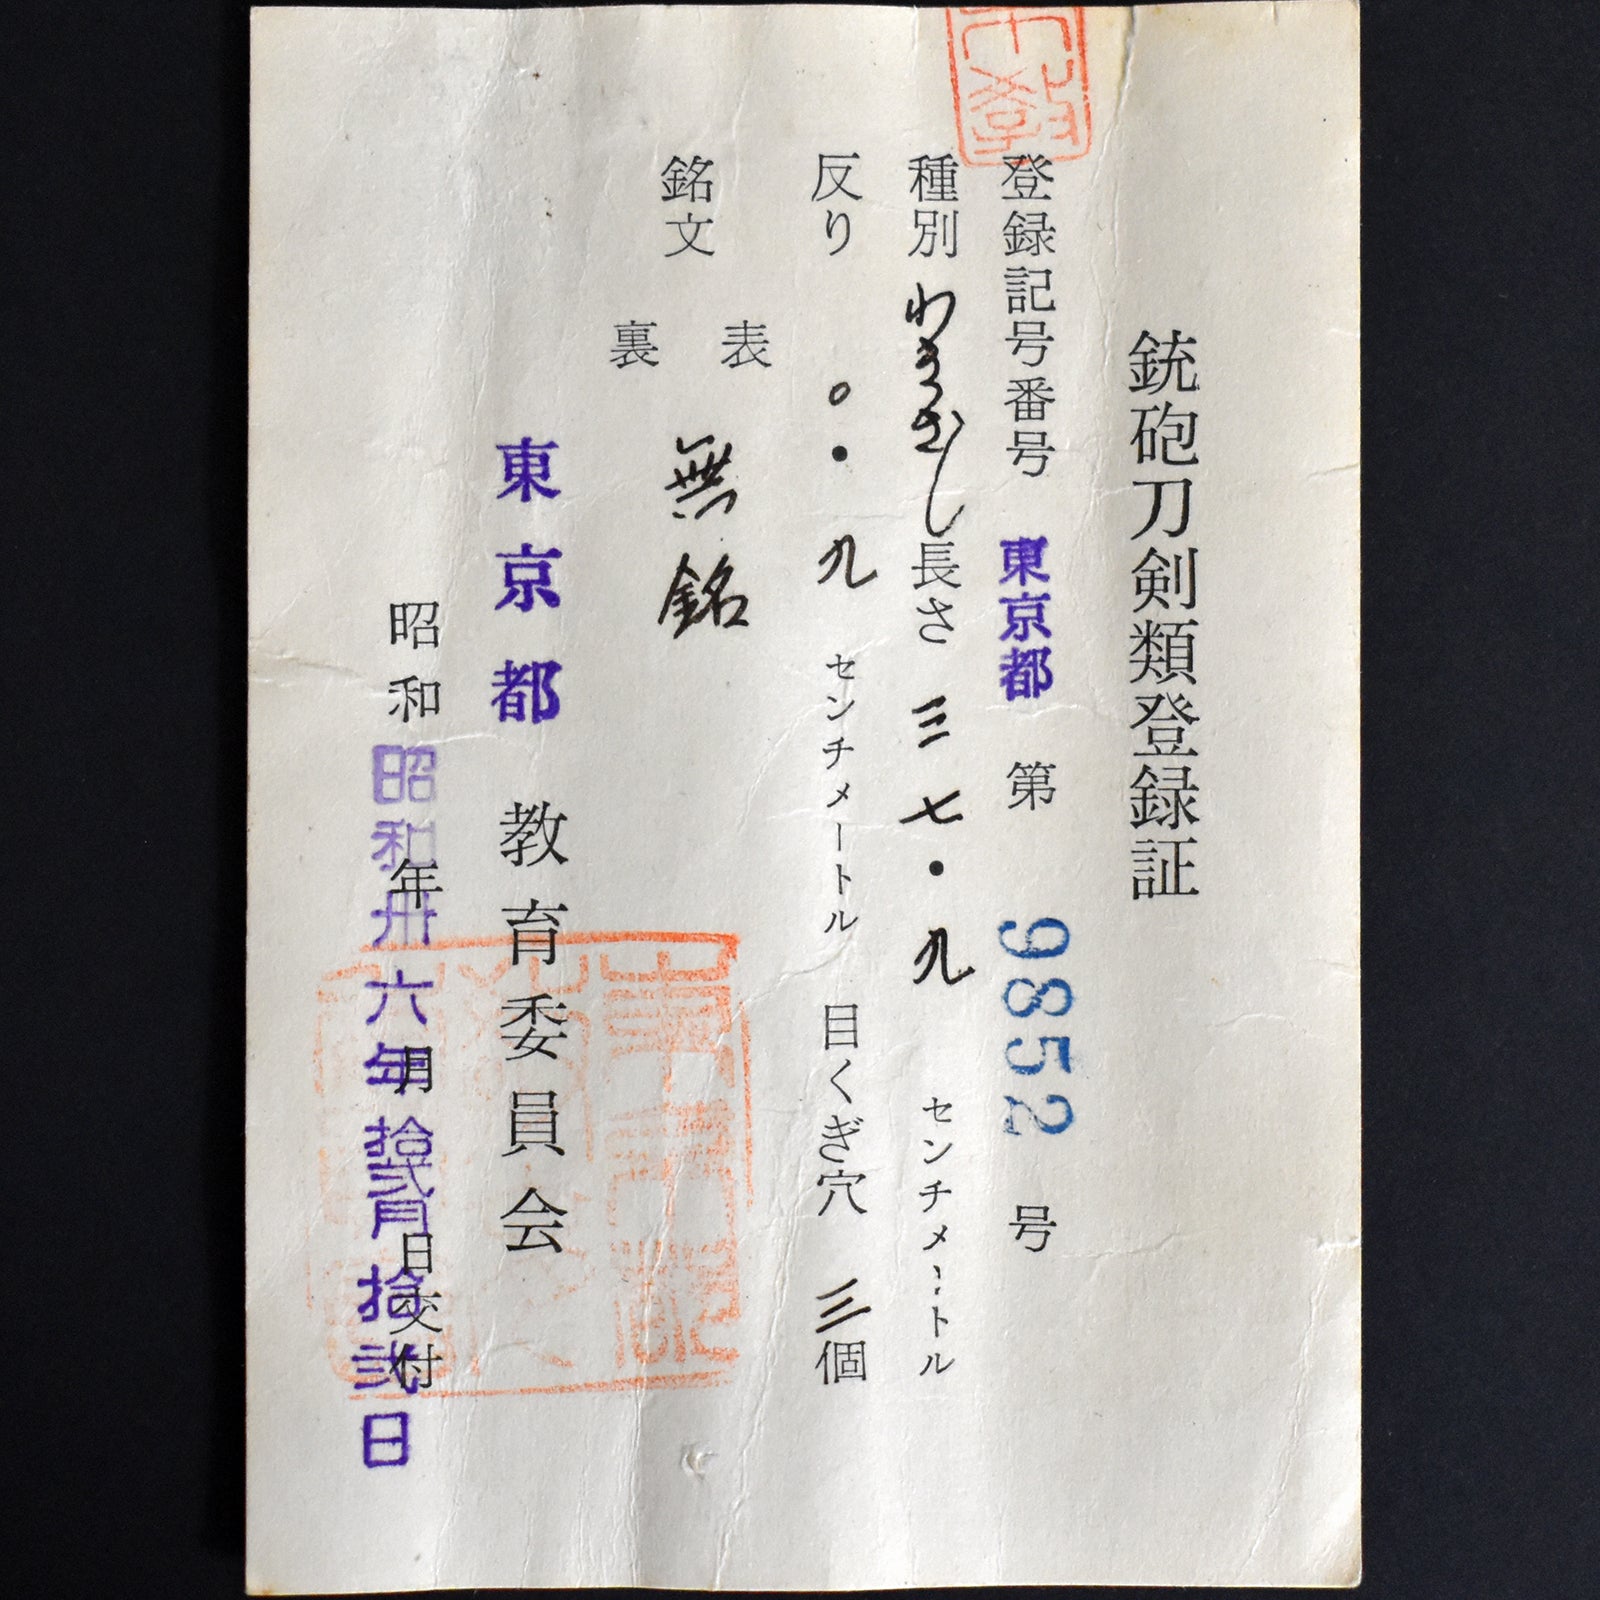 銃砲刀剣類登録証
登録記号番号 東京都 第 9852 号
種別 わきざし 長さ 三七・九 センチメートル
反り 〇・九 センチメートル 目くぎ穴 三個
銘文
表
無銘
裏
東京都 教育委員会
昭和 年 月 日交付
昭和卅六年拾弐月拾弐日